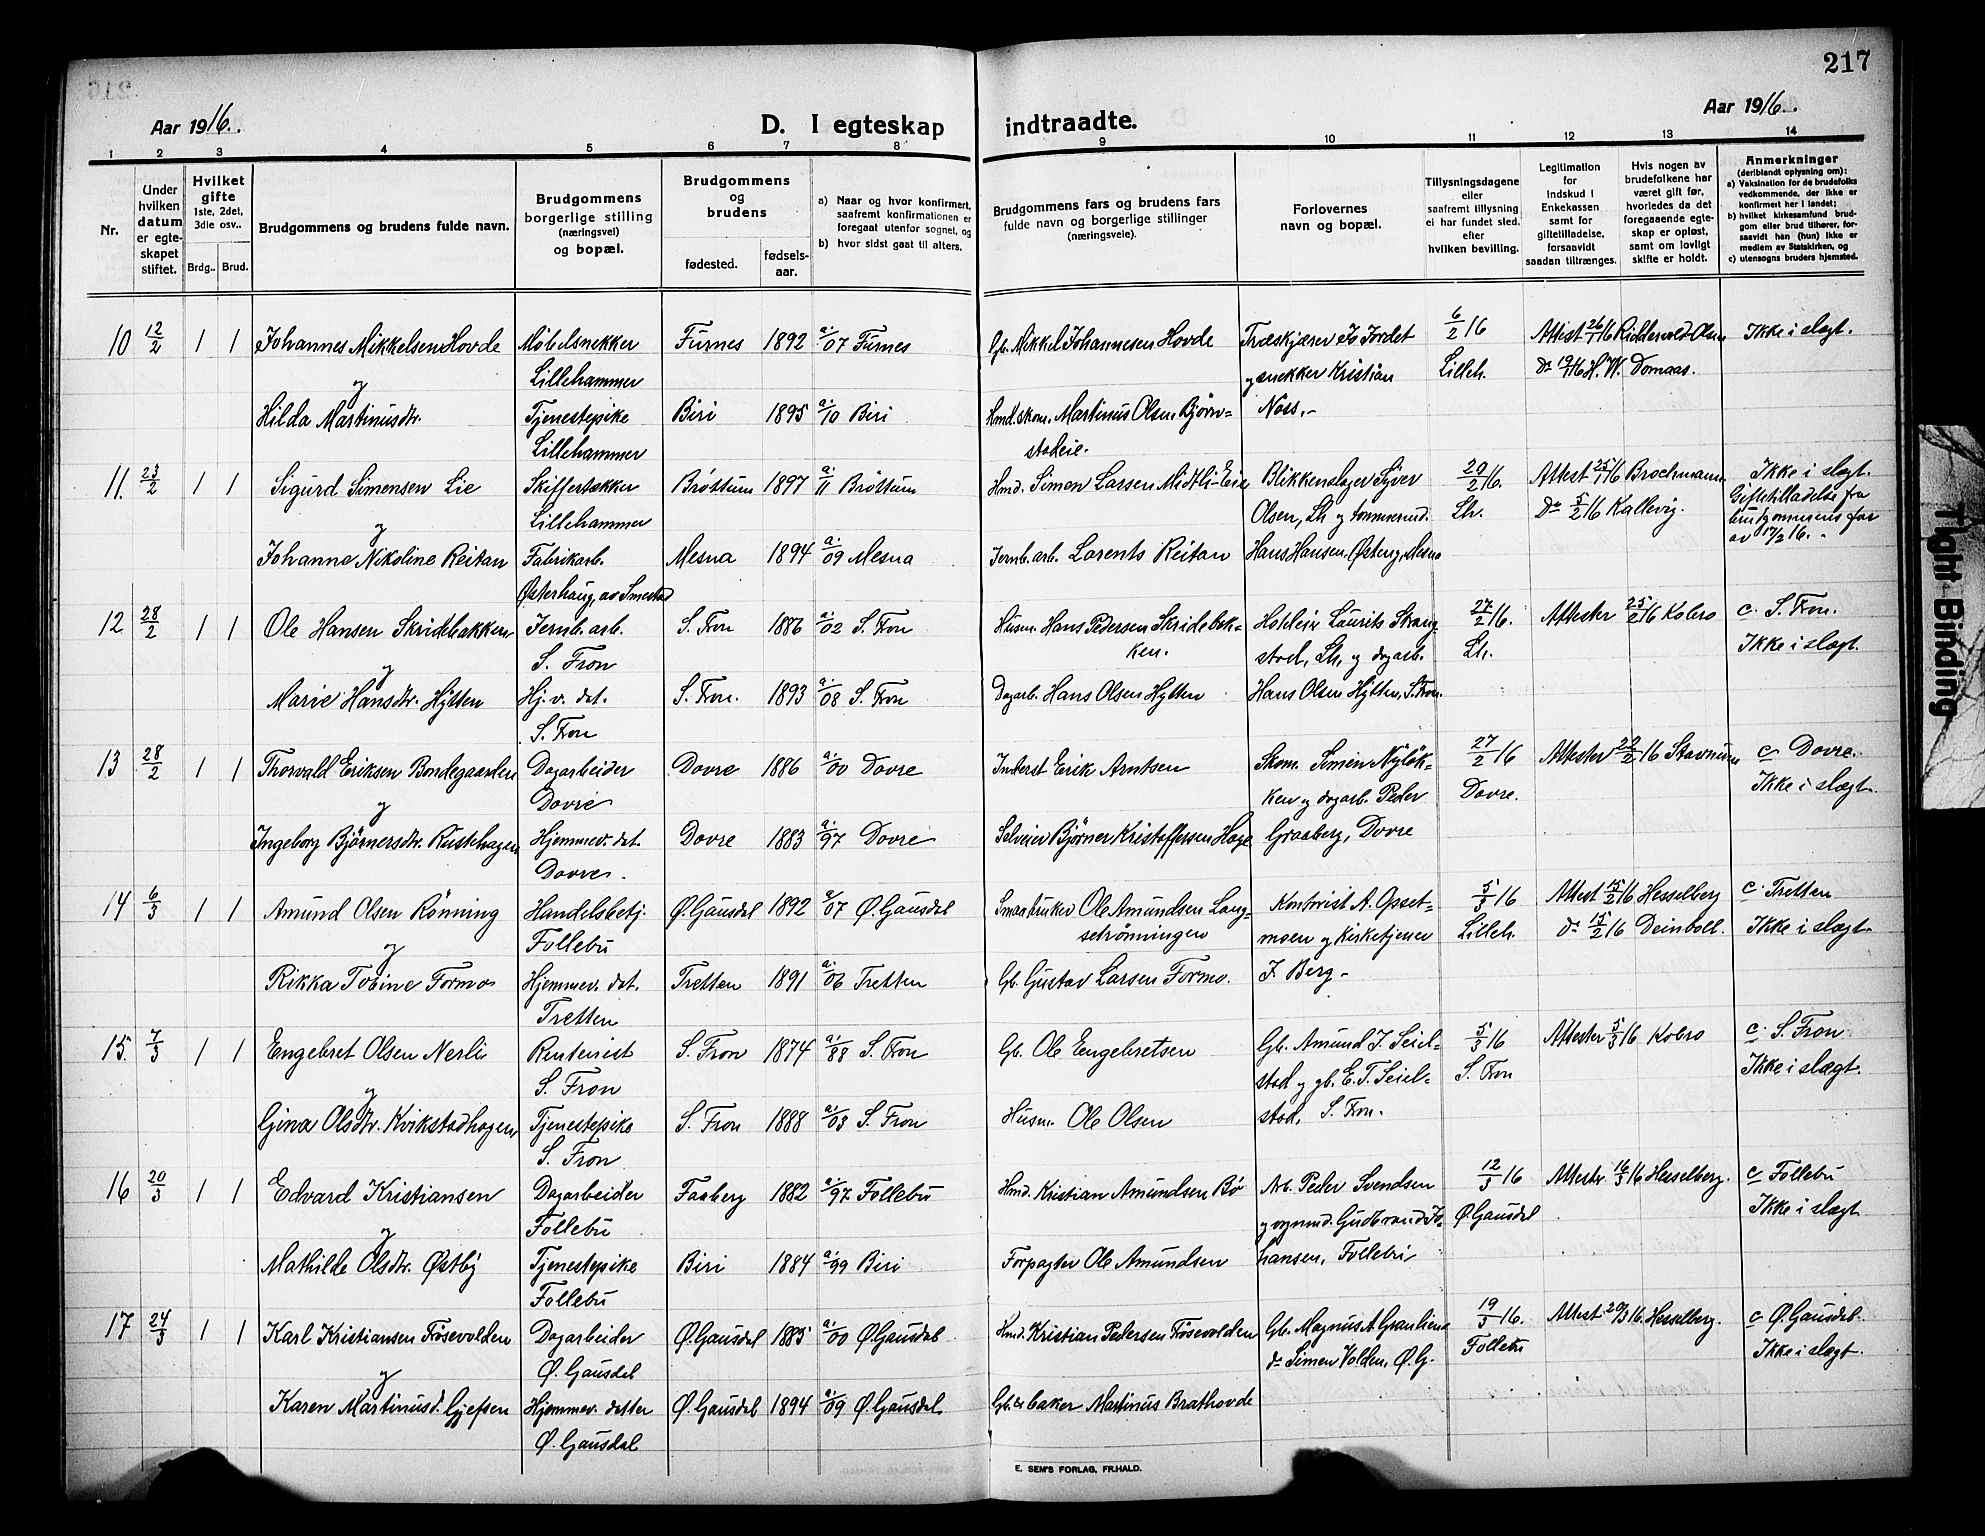 217
Aar 1916.
Aar 1916.
D. I egteskap indtraadte.
1 2 3 4 5 6 7 8 9 10 11 12 13 14
Nr.
Under hvilken datum er egteskapet stiftet.
Hvilket gifte 1ste, 2det, 3die osv..
Brdg.. Brud.
Brudgommens og brudens fulde navn.
Brudgommens borgerlige stilling (næringsvei) og bopæl.
Brudgommens og brudens
fødested.
fødselsaar.
a) Naar og hvor konfirmert, saafremt konfirmationen er foregaat utenfor sognet, og
b) hvor sidst gaat til alters.
Brudgommens fars og brudens fars fulde navn og borgerlige stillinger (næringsveie).
Forlovernes navn og bopæl.
Tillysningsdagene eller saafremt tillysning ei har fundet sted. efter hvilken bevilling.
Legitimation for indskud i Enkekassen samt for giftetilladelse, forsaavidt saadan tiltrænges.
Hvis nogen av brudefolkene har været gift før, hvorledes da det foregaaende egteskap er opløst, samt om lovligt skifte er holdt.
Anmerkninger (deriblandt oplysning om):
a) Vaksination for de brudefolks vedkommende, der ikke er konfirmert her i landet;
b) hvilket kirkesamfund brudgom eller brud tilhører, forsaavidt han (hun) ikke er medlem av Statskirken, og
c) utensogns bruders hjemsted.
10 12/2 1 1 Johannes Mikkelsen Hovde Møbelsnekker Furnes 1892 a: /07 Furnes Gb. Mikkel Johannesen Hovde Træskjærer Jo Jordet 6/2 16 Attest 26/1 16 Riddervold-Olsen Ikke i slægt.
og Lillehammer og snekker Kristian Lilleh. Do 19/1 16 H. W. Domaas.
Hilda Martinusdtr. Tjenestepike Biri 1895 a: /10 Biri Hmd. skom. Martinus Olsen Bjørn- Noss.-
Lillehammer stadeie.
11. 23/2 1 1 Sigurd Simensen Lie Skiffertækker Brøttum 1897 a: /11 Brøttum Hmd. Simen Larsen Midtli-Eie Blikkenslager Syver 20/2 16. Attest 25/1 16 Brochmann Ikke i slægt.
og Lillehammer Olsen, Lh. og tømmermd. Lh. Do 5/2 16 Kallevig. Giftetilladelse fra brudgommens far av 17/2 16.
Johanne Nikoline Reitan Fabrikarb. Mesna 1894 a: /09 Mesna Jernb. arb. Lorents Reitan Hans Hansen. Østeng, Mesna
Østerhaug, av Smestad
12 28/2 1 1 Ole Hansen Skridebakken Jernb. arb. S. Fron 1886 a: /02 S. Fron Husm. Hans Pedersen Skridebak- Hoteleier Laurits Strang- 27/2 16. Attester 25/2 16 Kobro c. S. Fron.
og S. Fron ken. stad, Lh. og dagarb. Lh. Ikke i slægt.
Marie Hansdtr. Hytten Hj. v. dat. S. Fron. 1893 a: /08 S. Fron Dagarb. Hans Olsen Hytten Hans Olsen Hytten, S. Fron.
S. Fron
13 28/2 1 1 Thorvald Eriksen Bondegaarden Dagarbeider Dovre 1886 a: /00 Dovre Inderst Erik Arntsen Skom. Simen Nyløk- 27/2 16 Attester 22/2 16 Stavnem c Dovre.
og Dovre ken og dagarb. Peder Dovre. Ikke i slægt.
Ingeborg Bjørnersdtr. Rustehagen Hjemmev. dat. Dovre 1883 a: /97 Dovre Selveier Bjørner Kristoffersen Hage Graaberg, Dovre
Dovre.
14 6/3 1 1 Amund Olsen Rønning Handelsbetj. Ø. Gausdal 1892 a: /07 Ø. Gausdal Smaabruker Ole Amundsen Lang- Kontorist A. Opset- 5/3 16 Attest 15/2 16 Hesselberg c. Tretten
og Follebu seterønningen moen og Kirketjener Lilleh. Do 15/2 16 Deinboll. Ikke i slægt.
Rikka Tobine Formo Hjemmev. dat. Tretten 1891 a: /06 Tretten Gb. Gustav Larsen Formo. J. Berg -
Tretten
15. 7/3 1 1 Engebret Olsen Nerli Rentenist S. Fron 1874 a: /88 S. Fron Gb. Ole Engebretsen Gb. Amund J. Seiel- 5/3 16 Attester 5/3 16 Kobro c. S. Fron
og S. Fron stad og gb. E. T. Seiel- S. Fron Ikke i slægt.
Gina Olsdtr. Kvikstadhagen Tjenestepike S. Fron 1888 a: /03 S. Fron Husm. Ole Olsen stad, S. Fron.
S. Fron
16 20/3 1 1 Edvard Kristiansen Dagarbeider Faaberg 1882 a: /97 Follebu Hmd. Kristian Amundsen Bø Arb. Peder Svendsen 12/3 16 Attester 16/3 16 Hesselberg. c Follebu
og Follebu og vognmd. Gudbrand Jo- Ø. Gausdal Ikke i slægt
Mathilde Olsdtr. Østby Tjenestepike Biri 1884 a: /99 Biri Forpagter Ole Amundsen hansen, Follebu
Follebu
17 24/3 1 1 Karl Kristiansen Fosevolden Dagarbeider Ø. Gausdal 1885 a: /00 Ø. Gausdal Hmd. Kristian Pedersen Fosevolden Gb. Magnus A. Granlien 19/3 16. Attest 20/3 16. Hesselberg. c Ø. Gausdal.
og Ø. Gausdal do Simen Volden, Ø. G. Follebu Ikke i slægt.
Karen Martinusd. Gjefsen Hjemmev. datter Ø. Gausdal 1894 a: /09 Ø. Gausdal. Gb. & baker Martinus Brathovde
Ø. Gausdal
E. SEM'S FORLAG, FR.HALD.
Tight Binding